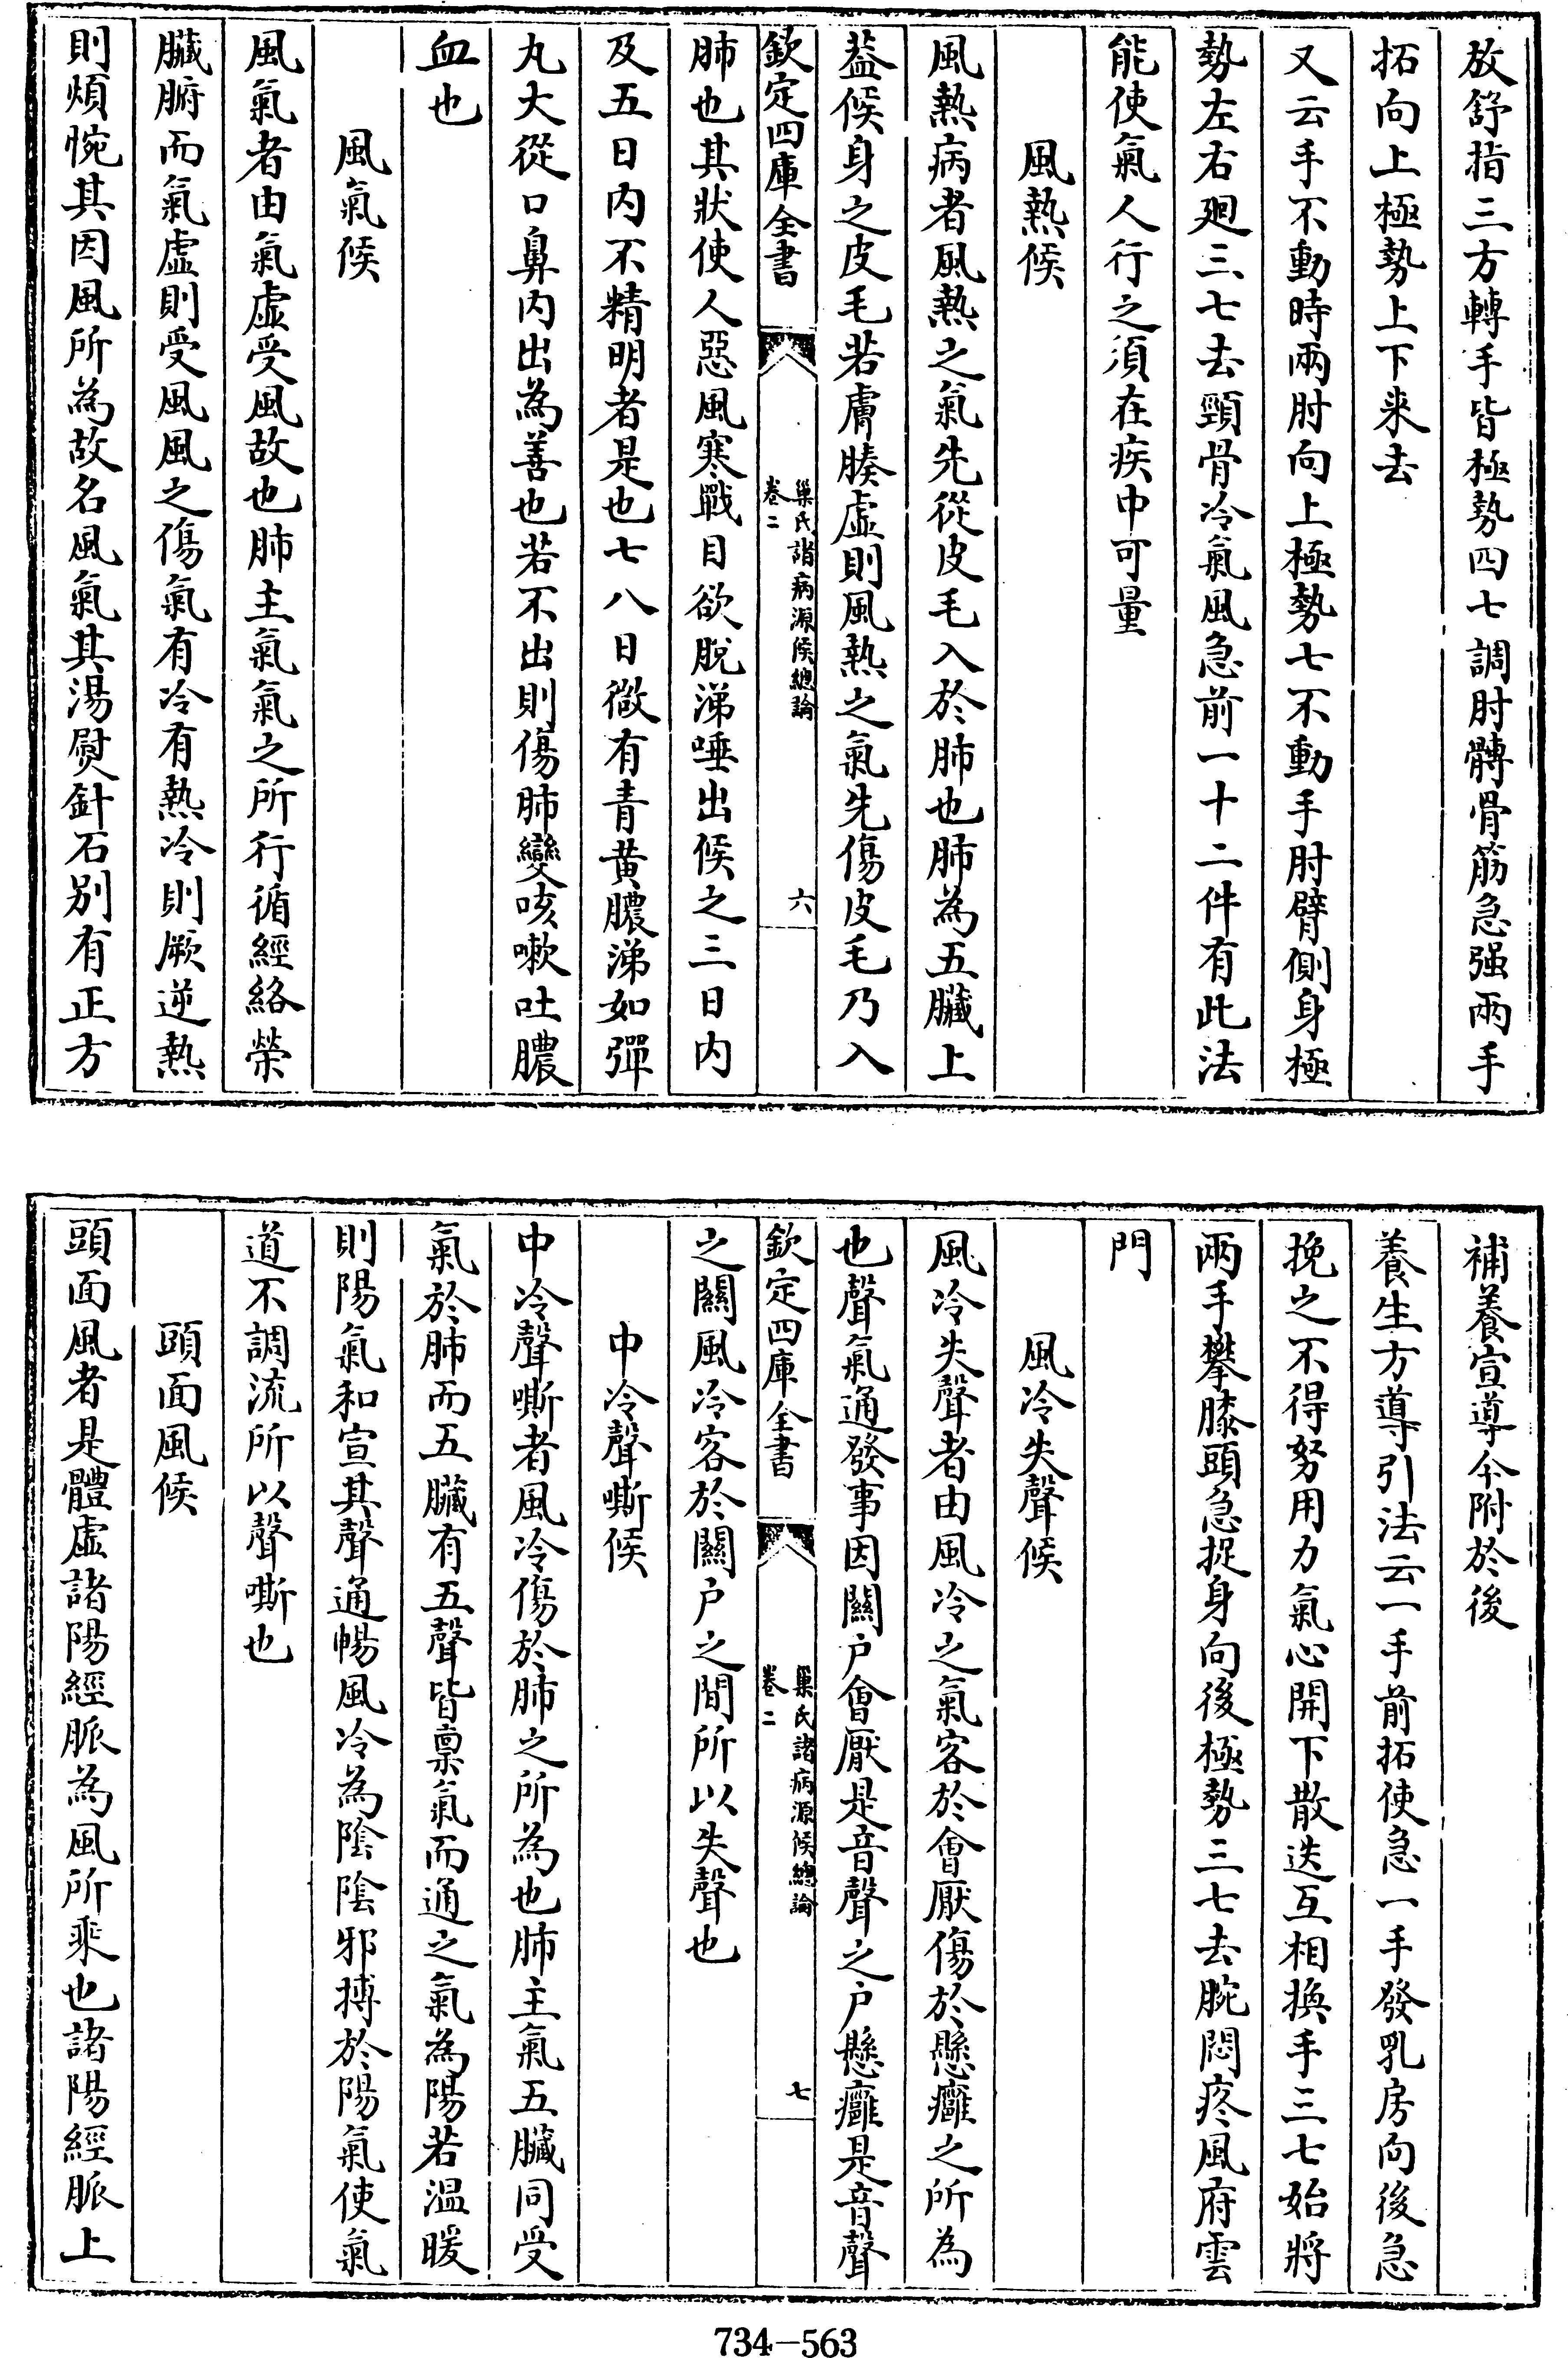 放舒指三方轉手皆極勢四七調肘髆骨筋急强兩手
拓向上極勢上下来去
又云手不動時兩肘向上極勢七不動手肘臂側身極
勢左右廻三七去頸骨冷氣風急前一十二件有此法
能使氣人行之須在疾中可量
風熱候
風熱病者風熱之氣先從皮毛入於肺也肺為五臟上
葢候身之皮毛若膚腠虚則風熱之氣先傷皮毛乃入
欽定四庫全書
巢氏諸病源候總論
卷二
六
肺也其狀使人惡風寒戰目欲脫涕唾出候之三日内
及五日内不精明者是也七八日微有青黄膿涕如彈
丸大從口鼻内出為善也若不出則傷肺變咳嗽吐膿
血也
風氣候
風氣者由氣虚受風故也肺主氣氣之所行循經絡榮
臟腑而氣虚則受風風之傷氣有冷有熱冷則厥逆熱
則煩惋其因風所為故名風氣其湯熨針石别有正方
補養宣導今附於後
養生方導引法云一手前拓使急一手發乳房向後急
挽之不得努用力氣心開下散迭互相換手三七始將
兩手攀膝頭急捉身向後極勢三七去腕悶疼風府雲
門
風冷失聲候
風冷失聲者由風冷之氣客於會厭傷於懸癰之所為
也聲氣通發事因關户會厭是音聲之户懸癰是音聲
欽定四庫全書
巢氏諸病源候總論
卷二
七
之關風冷客於關户之間所以失聲也
中冷聲嘶候
中冷聲嘶者風冷傷於肺之所為也肺主氣五臟同受
氣於肺而五臟有五聲皆禀氣而通之氣為陽若温暖
則陽氣和宣其聲通暢風冷為陰陰邪搏於陽氣使氣
道不調流所以聲嘶也
頭面風候
頭面風者是體虚諸陽經脈為風所乘也諸陽經脈上
734-563